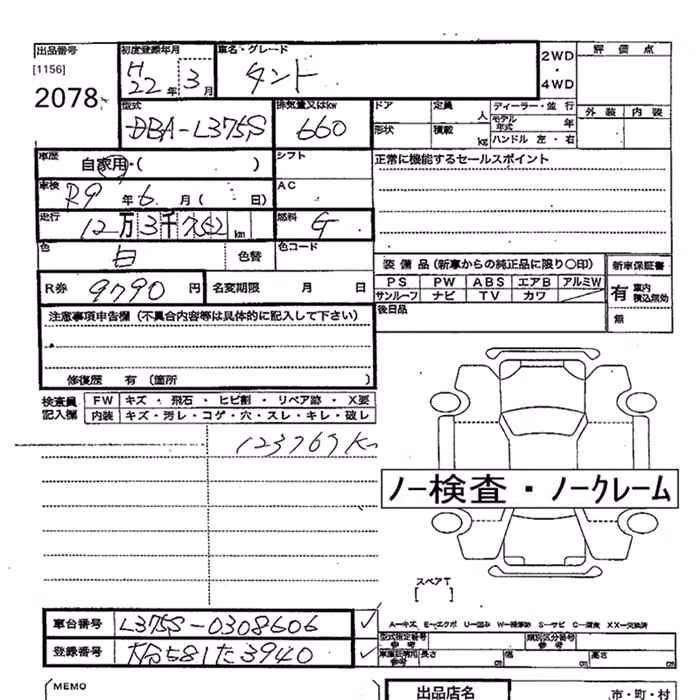 出品番号 初度登録年月 車名・グレード 2WD・4WD 評価点
[1156]
2078 H22年3月 タント 外装 内装
型式 排気量又はkw ドア 定員 人 ディーラー・並行
DBA-L375S 660 形状 積載 kg モデル年式 年 ハンドル 左・右
車歴 自家用・( ) シフト 正常に機能するセールスポイント
車検 R9年6月( 日) AC
走行 12万3千752km 燃料 G
色 白 色替 色コード
装備品(新車からの純正品に限り〇印) 新車保証書
R券 9790円 名変期限 月 日
PS PW ABS エアB アルミW 有 車内積込無効
サンルーフ ナビ TV カワ
後日品 無
注意事項申告欄(不具合内容等は具体的に記入して下さい)
修復歴 有(箇所 )
検査員記入欄 FW キズ・飛石・ヒビ割・リペア跡・X要
内装 キズ・汚レ・コゲ・穴・スレ・キレ・破レ
123769K
ノー検査・ノークレーム
スペアT
[ ]
車台番号 L375S-0308606 ✓
A−キズ E−エクボ U−凹み W−補修跡 S−サビ C−腐食 XX−交換済
登録番号 581た3940 ✓
型式指定番号 参考 類別区分番号 参考
車庫証明用参考 長さ cm 幅 cm 高さ cm
MEMO 出品店名 市・町・村